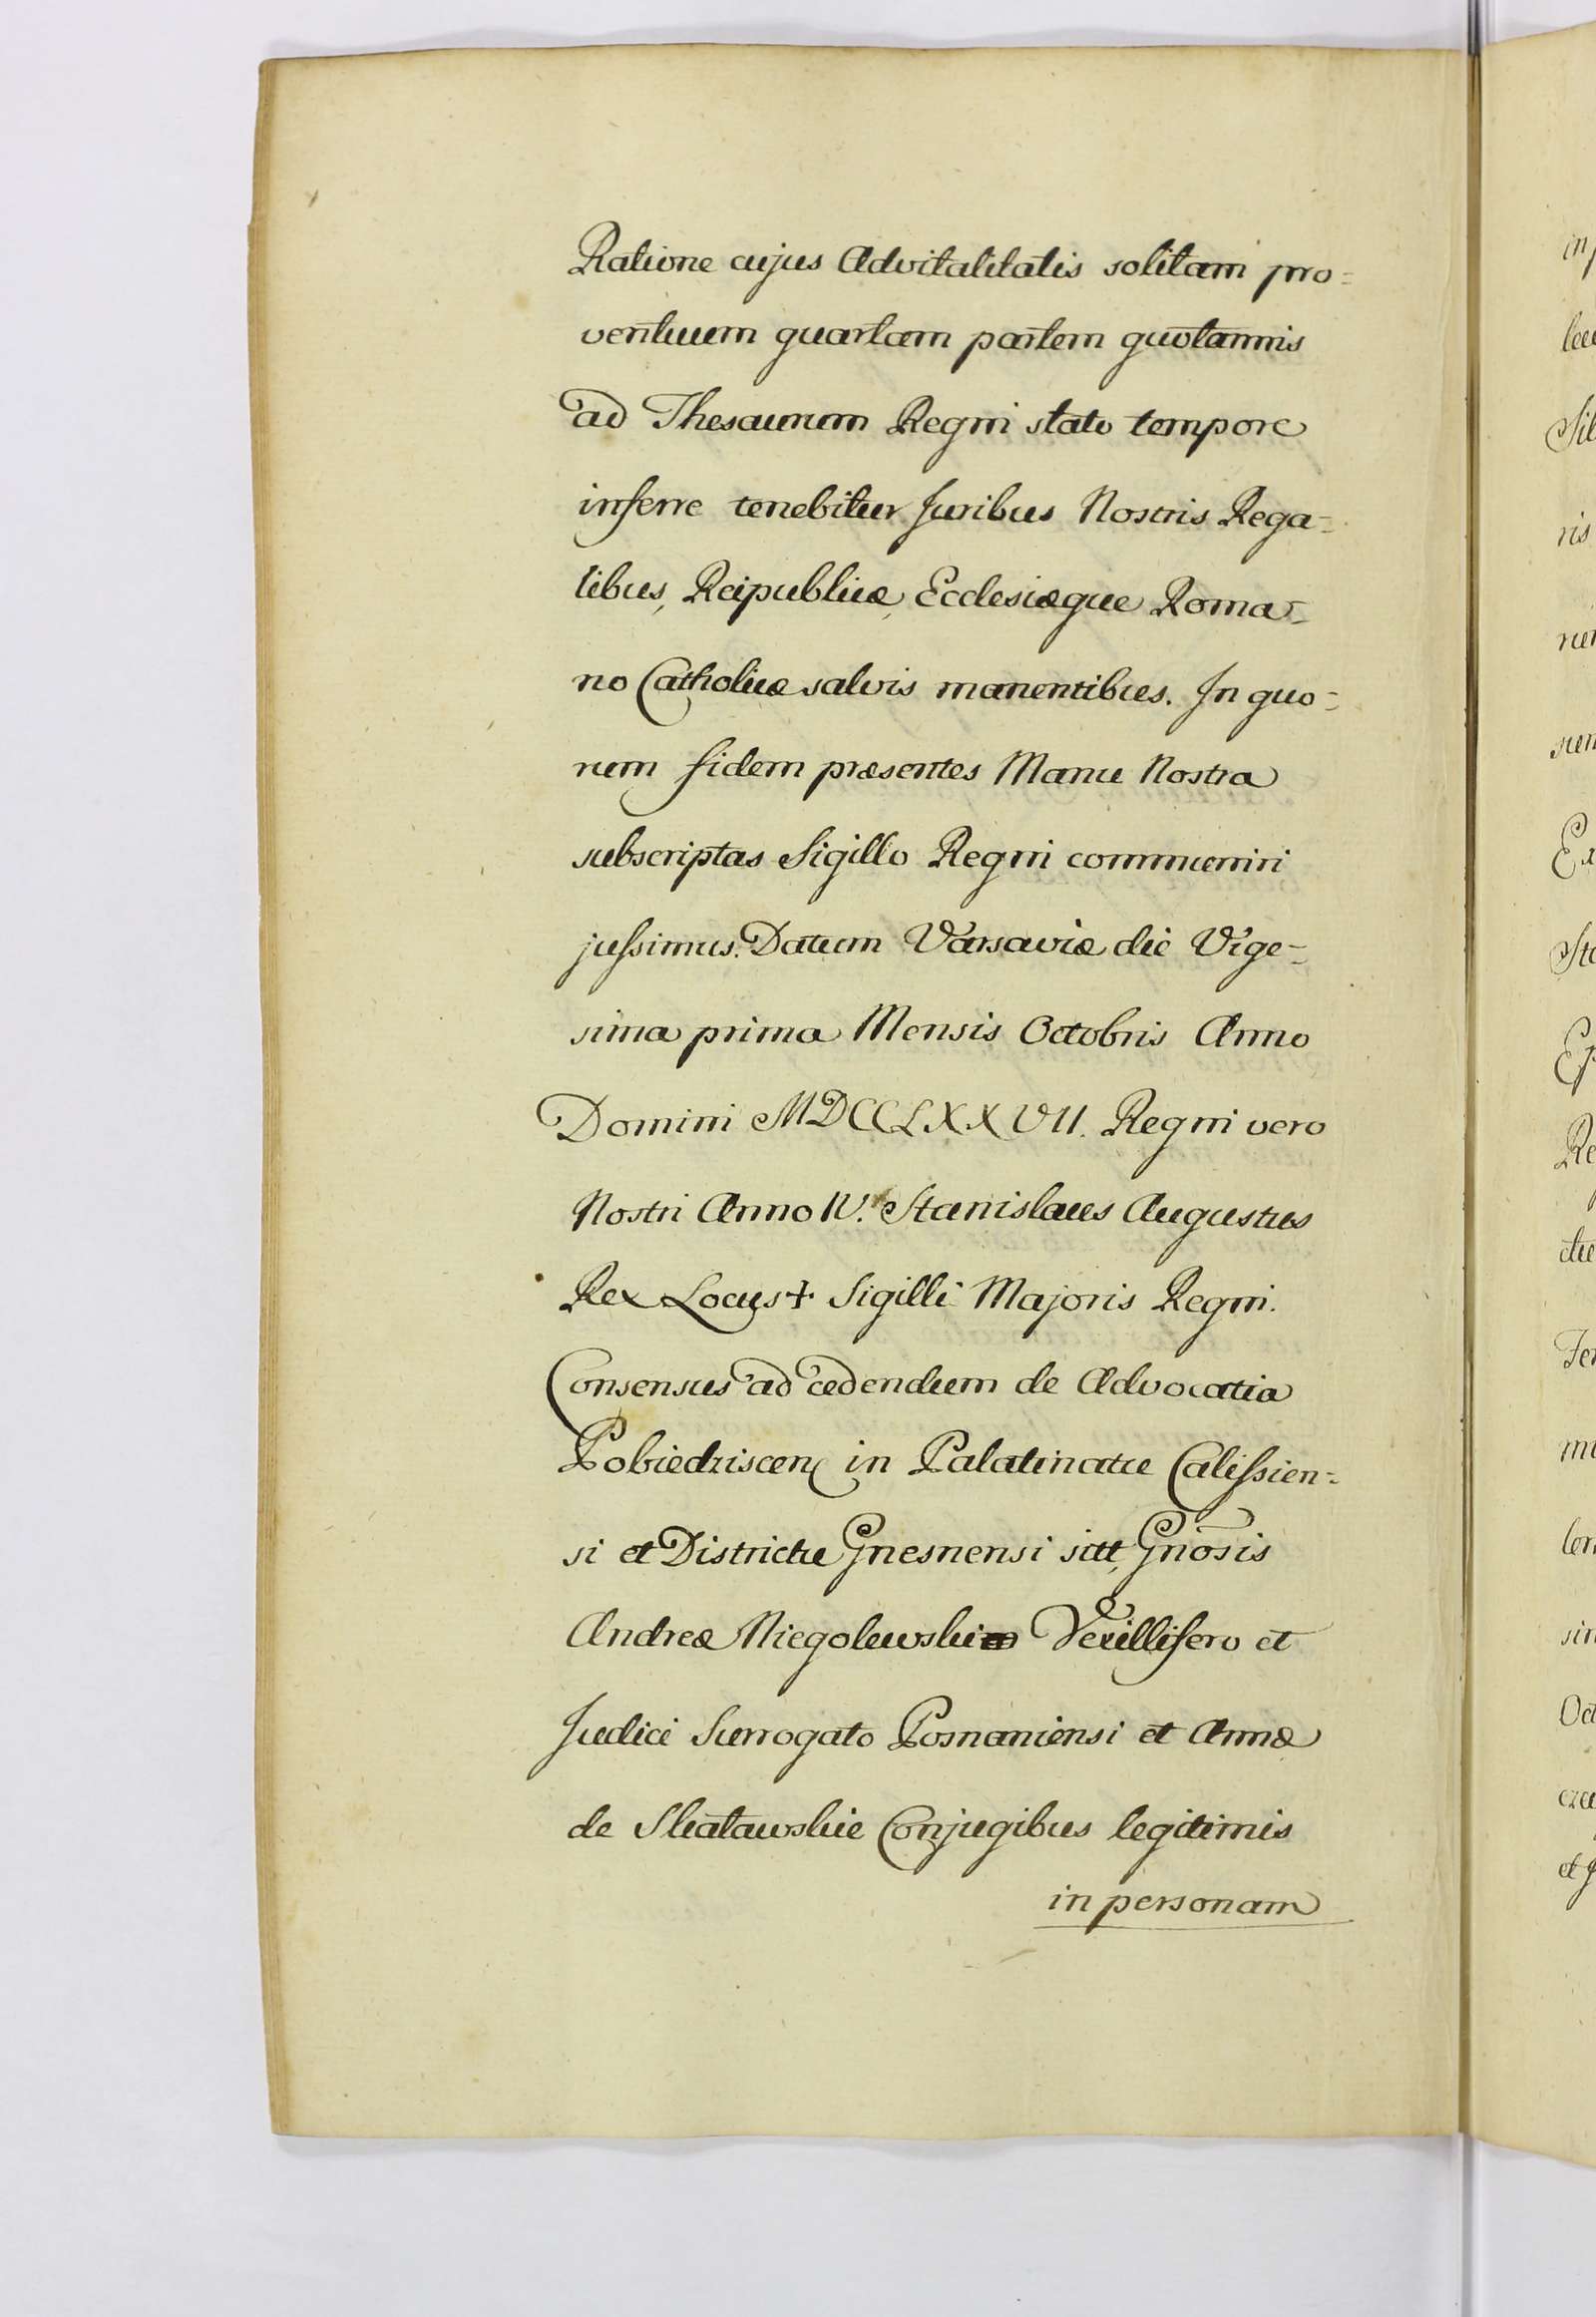 Ratione cujus Advitalitatis solitam pro=
ventuum quartam partem quotannis
ad Thesaurum Regni stato tempore
inferre tenebitur Juribus Nostris Rega=
libus, Reipublicæ, Ecclesiæque Roma=
no Catholicæ salvis manentibus. In quo=
rum fidem præsentes Manu Nostra
subscriptas Sigillo Regni communiri
jussimus. Datum Varsaviæ die Vige=
sima prima Mensis Octobris Anno
Domini MDCCLXXVII. Regni vero
Nostri Anno IV. Stanislaus Augustus
Rex Locus + Sigilli Majoris Regni.
Consensus ad cedendum de Advocatia
Pobiedziscen in Palatinatu Calissien=
si et Districtu Gnesnensi sitt, Gnosis
Andreæ Niegolewski Vexillifero et
Judici Surrogato Posnaniensi et Annæ
de Skałławskie Conjugibus legitimis
in personam